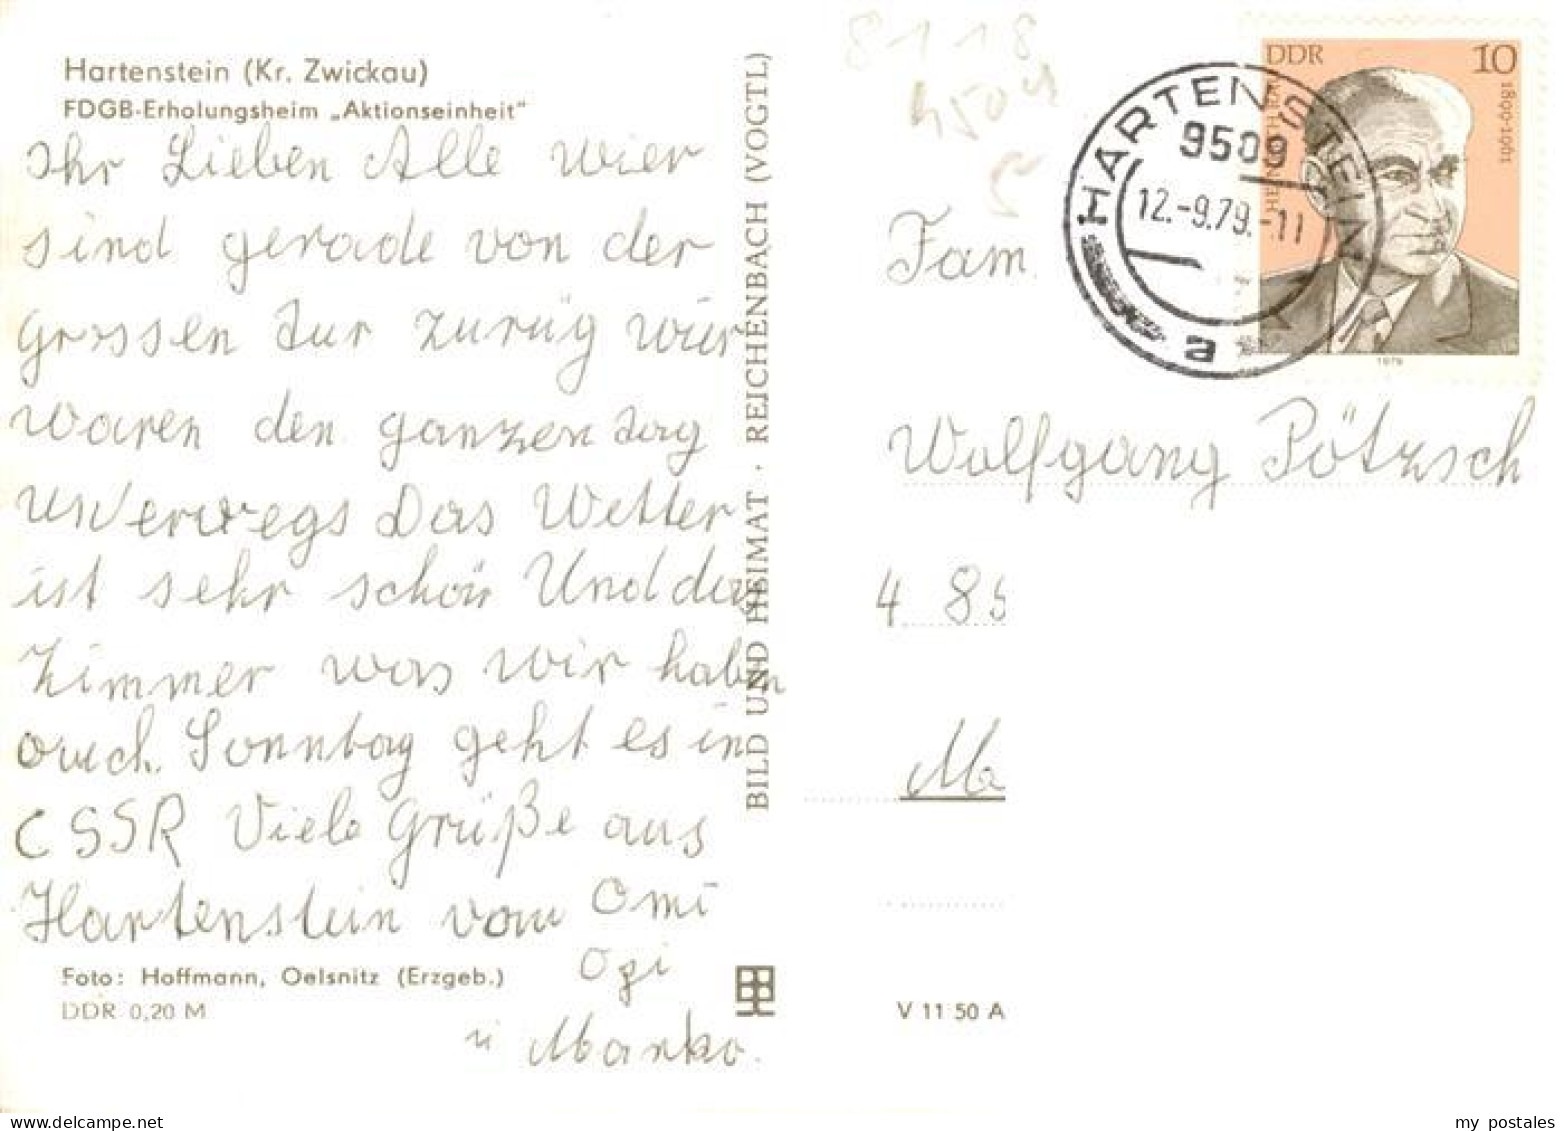 Hartenstein (Kr. Zwickau)
FDGB-Erholungsheim „Aktionseinheit"
Ihr Lieben Alle wier
sind gerade von der
Grossen Tur zurüg wier
waren den ganzen Tag
unterwegs Das Wetter
ist sehr schön Und das
Zimmer was wir haben
auch. Sonntag geht es in
CSSR Viele Grüße aus
Hartenstein vom Omi
Opi
u Manko.
Foto: Hoffmann, Oelsnitz (Erzgeb.)
DDR 0,20 M
BILD UND HEIMAT · REICHENBACH (VOGTL)
V 11 50 A
8118
4504
5
HARTENSTEIN
9509
12.-9.79.-11
a
DDR 10
1899-1961
1979
Fam.
Wolfgang Pötzsch
4 85
my postales